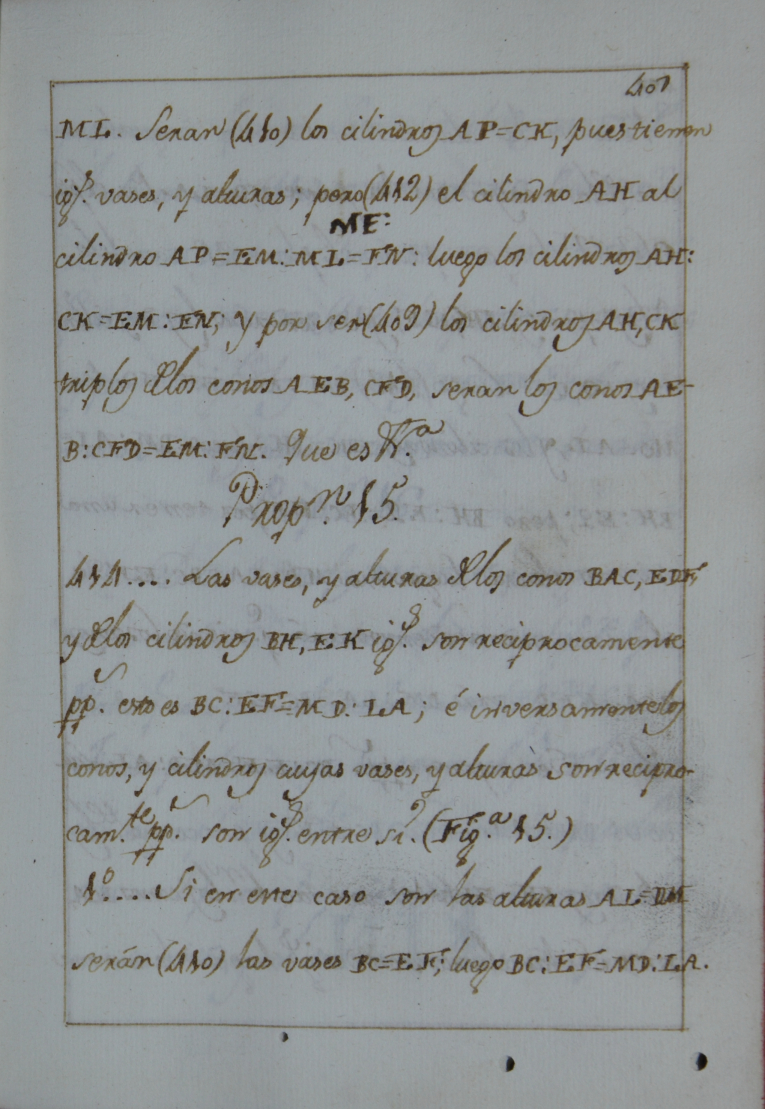 401
ML. Seran (410) los cilindros AP=CK, pues tienen
igs. vases, y alturas; pero (412) el cilindro AH al
ME:
cilindro AP=EM:ML=FN: luego los cilindros AH:
CK=EM:FN; y por ser (409) los cilindros AH, CK
triplos de los conos AEB, CFD, seran los conos AE-
B:CFD=EM:FN. Que es
Propn. 15.
414.... Las vases, y alturas de los conos BAC, EDF
y de los cilindros BH, EK igs. son reciprocamente
pps. esto es BC:EF=MD:LA; é inversamente los
conos, y cilindros cuyas vases, y alturas son recipro-
camte. pps. son igs. entre si. (Figa. 15.)
1º.... Si en este caso son las alturas AL=DM
serán (410) las vases BC=EF; luego BC:EF=MD:LA.